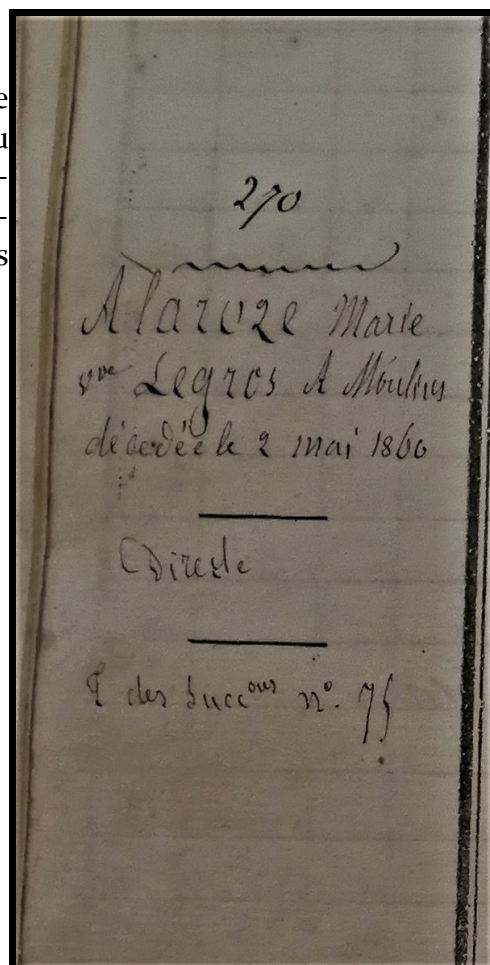 e
u
-
-
s
270
Alaroze Marie
vve Legros A Moulins
décédée le 2 mai 1860
Directe
T des Succons no. 75